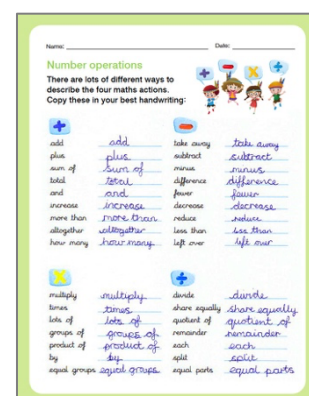 Name: Date:
Number operations
There are lots of different ways to
describe the four maths actions.
Copy these in your best handwriting:
add add
plus plus
sum of sum of
total total
and and
increase increase
more than more than
altogether altogether
how many how many
take away take away
subtract subtract
minus minus
difference difference
fewer fewer
decrease decrease
reduce reduce
less than less than
left over left over
multiply multiply
times times
lots of lots of
groups of groups of
product of product of
by by
equal groups equal groups
divide divide
share equally share equally
quotient of quotient of
remainder remainder
each each
split split
equal parts equal parts